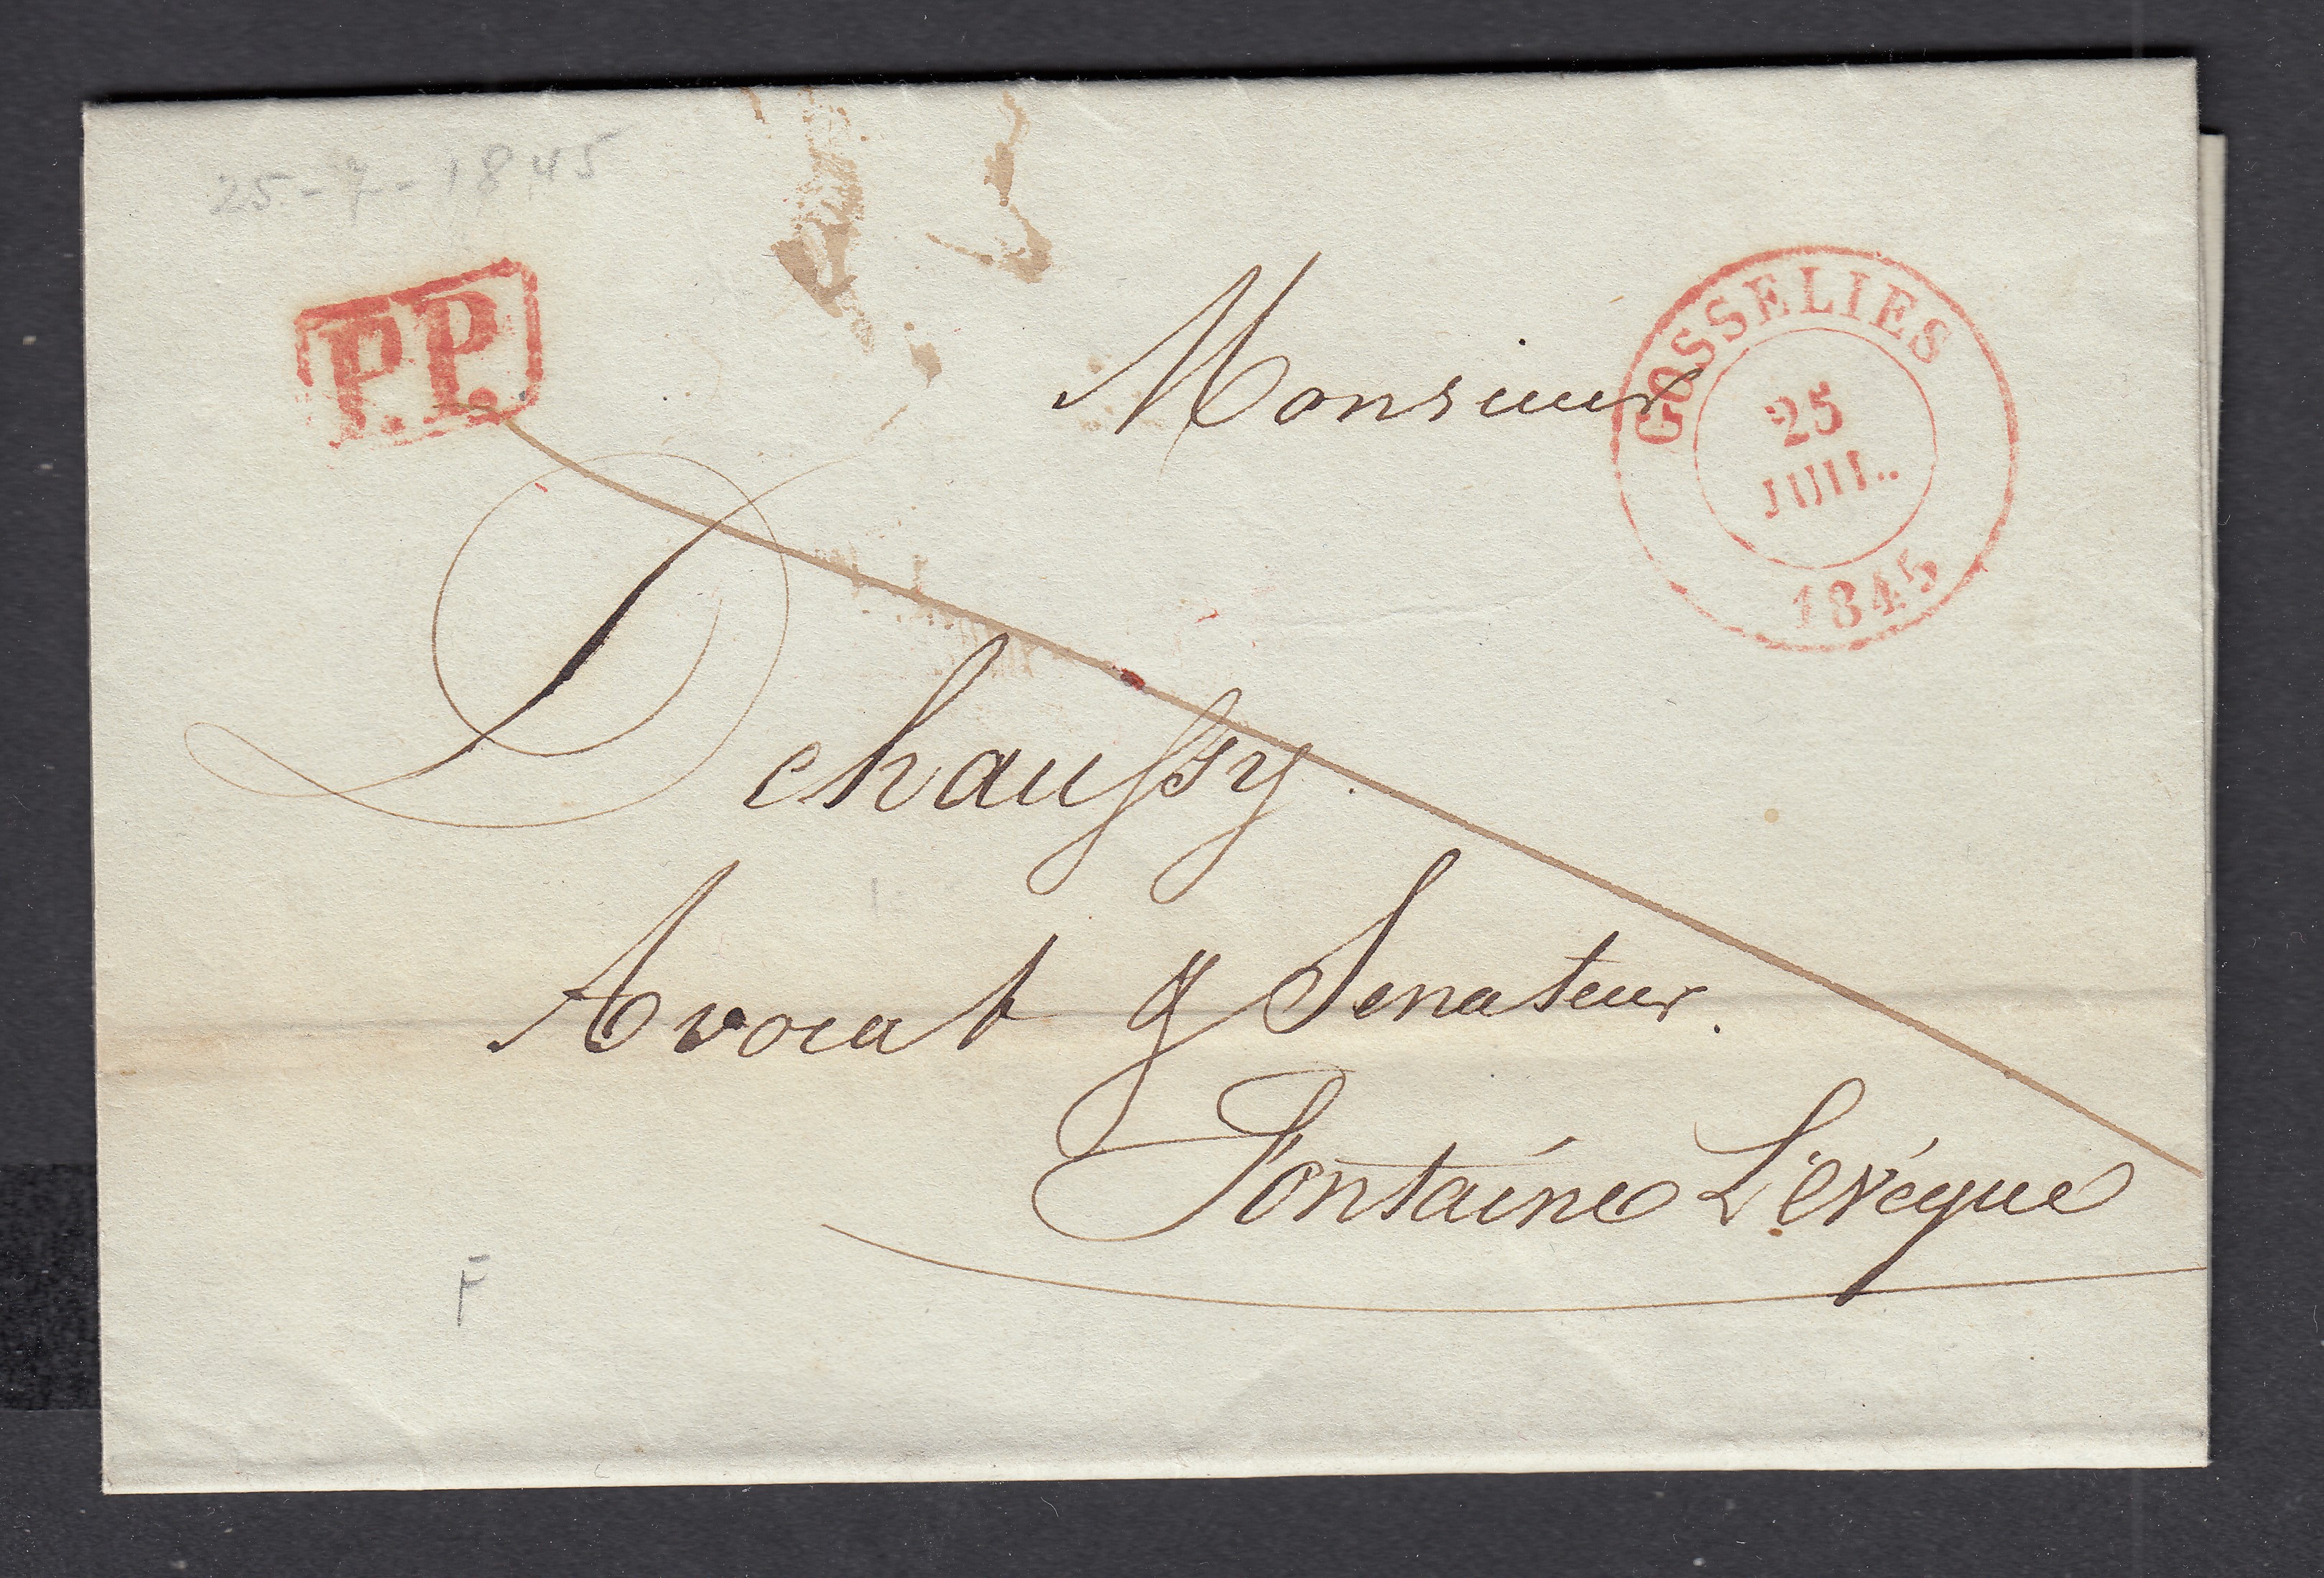 25-7-1845
P.P.
GOSSELIES
25
JUIL.
1845
Monsieur
Dehaussy
Avocat & Senateur.
Fontaine L'evéque
F